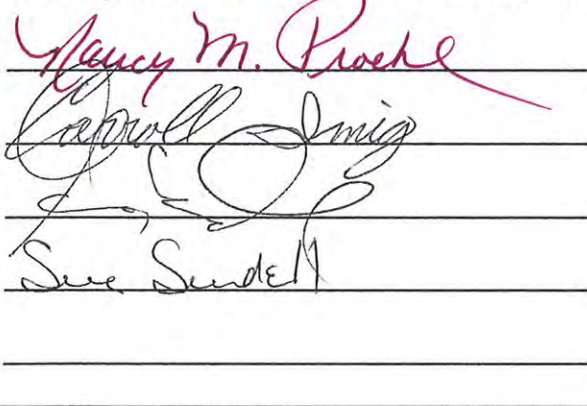 Nancy M. Proehl
Carroll Imig
Sue Sundell